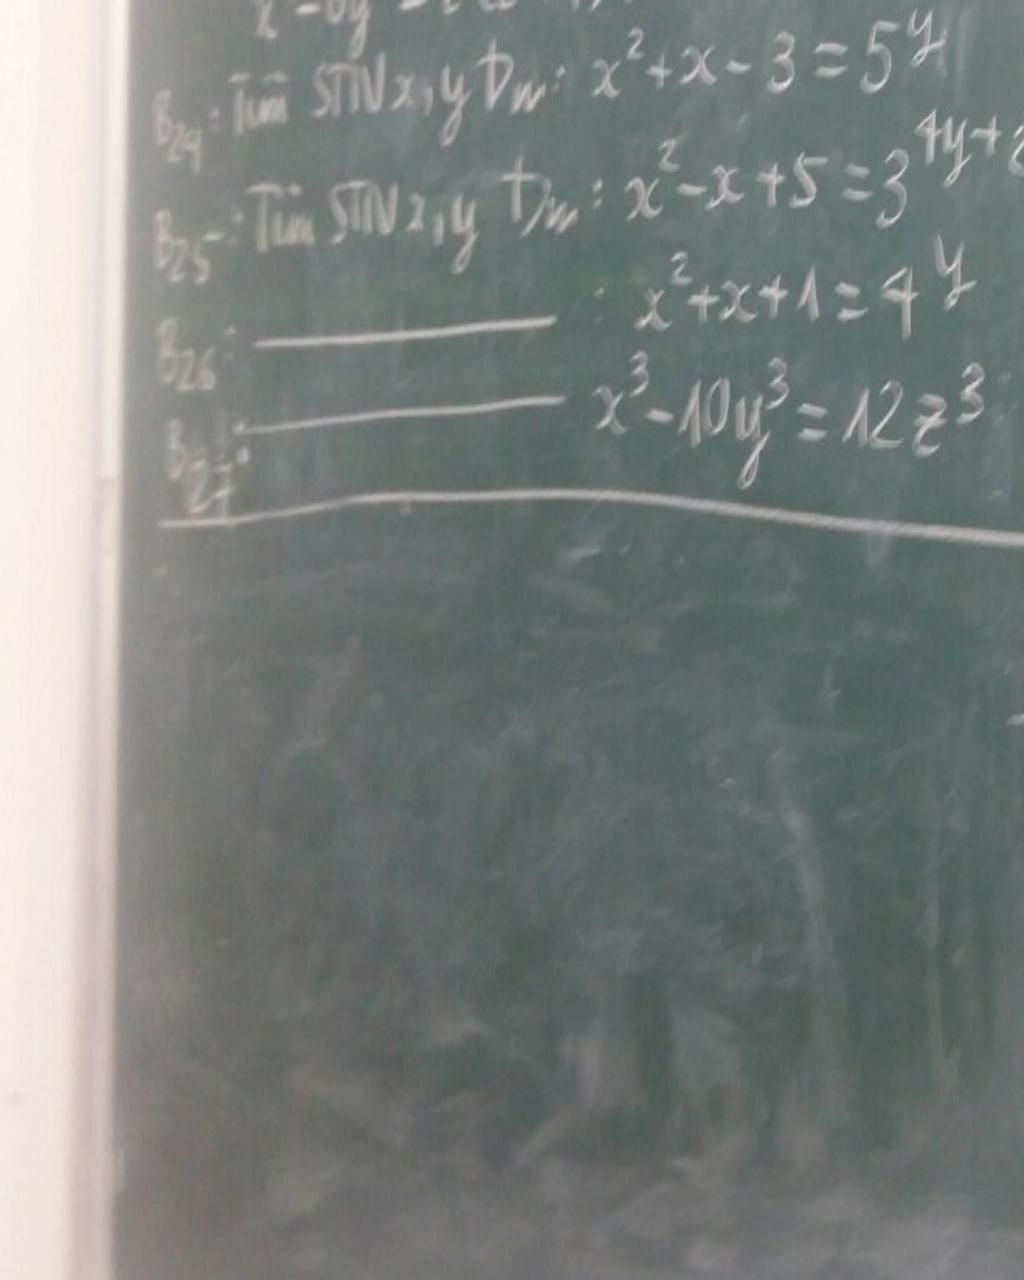 B24: Tìm STN x, y t/m: x² + x - 3 = 5^y
B25: Tìm STN x, y t/m: x² - x + 5 = 3^4y+2
B26: : x² + x + 1 = 4^y
B27: x³ - 10y³ = 12z³